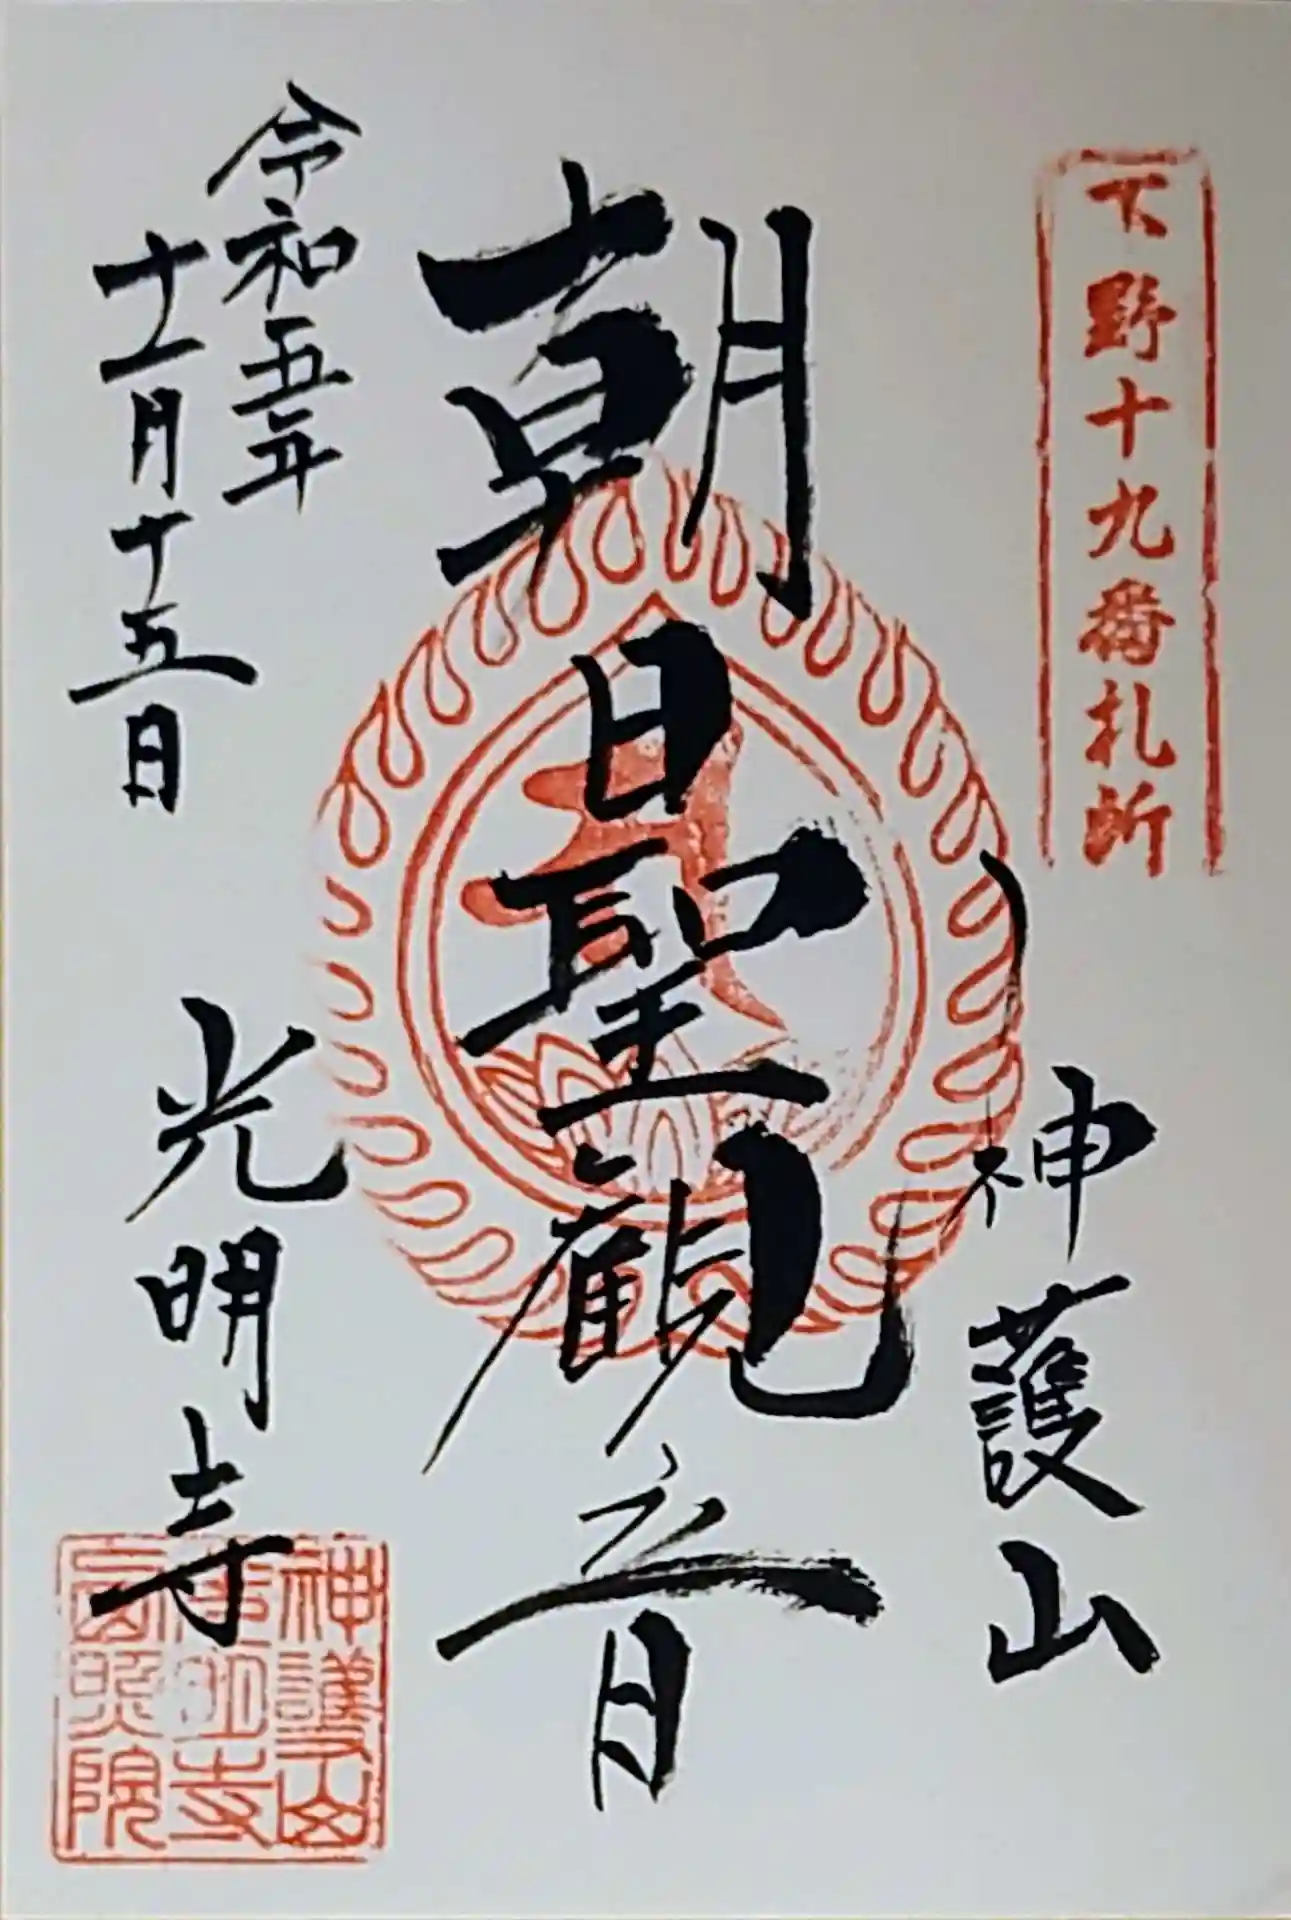 下野十九番札所
神護山
朝日聖観音
令和五年
十一月十五日
光明寺
神護山
光明寺
遍照院